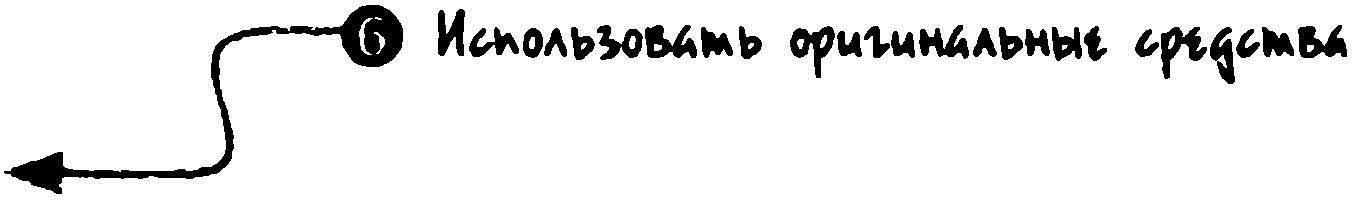 6 Использовать оригинальные средства